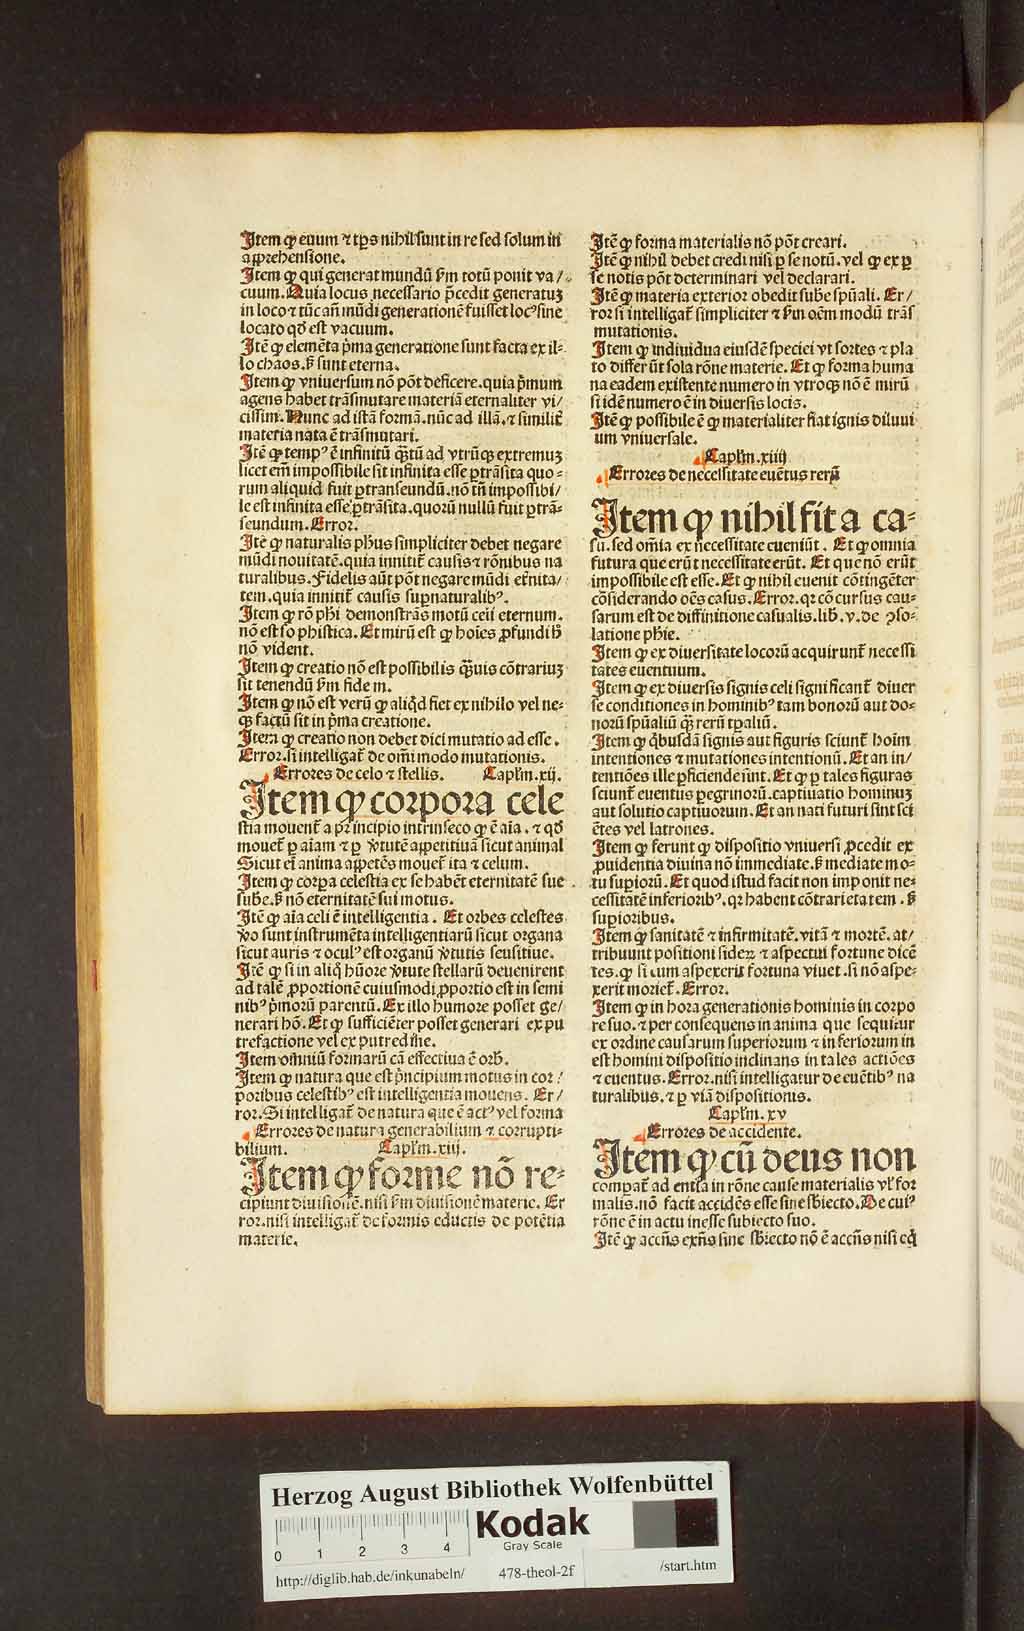 Item ꝙ euum ⁊ tp̄s nihil sunt in re sed solum in
apprehensione.
Item ꝙ qui generat mundū ẜm totū ponit va/
cuum. Quia locus necessario p̄cedit generatuꝫ
in loco ⁊ tūc añ mūdi generationē fuisset locꝰ sine
locato qđ est vacuum.
Itē ꝙ elemēta p̄ma generatione sunt facta ex il-
lo chaos. ꝭ sunt eterna.
Item ꝙ vniuersum nō pōt deficere. quia p̄mum
agens habet trāsmutare materiā eternaliter vi/
cissim. Nunc ad istā formā. nūc ad illā. ⁊ similiṫ
materia nata ē trāsmutari.
Itē ꝙ tempꝰ ē infinitū quātū ad vtrūqꝫ extremuꝫ
licet em̄ impossibile sit infinita esse ꝑtrāsita quo-
rum aliquid fuit ꝑtranseundū. nō tñ impossibi/
le est infinita esse ꝑtrāsita. quorū nullū fuit ꝑtrā-
seundum. Error.
Itē ꝙ naturalis ph̄us simpliciter debet negare
mūdi nouitatē. quia innitiṫ causis ⁊ rōnibus na
turalibus. Fidelis aūt pōt negare mūdi eṫnita/
tem. quia innitiṫ causis suꝑnaturalibꝰ.
Item ꝙ rō ph̄i demonstrās motū celi eternum.
nō est sophistica. Et mirū est ꝙ hoīes ꝓfundi h̄
nō vident.
Item ꝙ creatio nō est possibilis quāuis cōtrariuꝫ
sit tenendū ẜm fidem.
Item ꝙ nō est verū ꝙ aliqd fiet ex nihilo vel ne-
qꝫ factū sit in p̄ma creatione.
Item ꝙ creatio non debet dici mutatio ad esse.
Error. si intelligaṫ de omī modo mutationis.
Errores de celo ⁊ stellis. Capl̄m. xij.
Item ꝙ corpora cele
stia mouenṫ a principio intrinseco ꝙ ē aīa. ⁊ qđ
moueṫ ꝑ aīam ⁊ ꝑ v̓tutē appetitiuā sicut animal
Sicut em̄ anima appetēs moueṫ ita ⁊ celum.
Item ꝙ corꝑa celestia ex se habēt eternitatē sue
sube. ꝭ nō eternitatē sui motus.
Itē ꝙ aīa celi ē intelligentia. Et orbes celestes
v̓o sunt instrumēta intelligentiarū sicut organa
sicut auris ⁊ oculꝰ est organū v̓tutis sensitiue.
Itē ꝙ si in aliq̄ hūore v̓tute stellarū deuenirent
ad talē ꝓportionē cuiusmodi ꝓportio est in semi
nibꝰ p̄morū parentū. Ex illo humore posset ge/
nerari hō. Et ꝙ sufficiēter posset generari ex pu
trefactione vel ex putredine.
Item omniū formarū cā effectiua ē orb̄.
Item ꝙ natura que est p̄ncipium motus in cor/
poribus celestibꝰ est intelligentia mouens. Er/
ror. Si intelligaṫ de natura que ē actꝰ vel forma
Errores de natura generabilium ⁊ corrupti-
bilium. Capl̄m. xiij.
Item ꝙ forme nō re-
cipiunt diuisionē. nisi ẜm diuisionē materie. Er
ror. nisi intelligaṫ de formis eductis de potētia
materie.
Itē ꝙ forma materialis nō pōt creari.
Itē ꝙ nihil debet credi nisi ꝑ se notū. vel ꝙ ex ꝑ
se notis pōt determinari vel declarari.
Itē ꝙ materia exterior obedit sube spūali. Er/
ror si intelligaṫ simpliciter ⁊ ẜm oēm modū trās
mutationis.
Item ꝙ indiuidua eiusdē speciei vt sortes ⁊ pla
to differūt sola rōne materie. Et ꝙ forma huma
na eadem existente numero in vtroqꝫ nō ē mirū
si idē numero ē in diuersis locis.
Itē ꝙ possibile ē ꝙ materialiter fiat ignis diluui
um vniuersale.
Capl̄m. xiiij
Errores de necessitate euētus rerū
Item ꝙ nihil fit a ca-
su. sed om̄ia ex necessitate eueniūt. Et ꝙ omnia
futura que erūt necessitate erūt. Et que nō erūt
impossibile est esse. Et ꝙ nihil euenit cōtingēter
cōsiderando oēs casus. Error. qꝛ cōcursus cau-
sarum est de diffinitione casualis. lib̄. v. de ꝯso-
latione ph̄ie.
Item ꝙ ex diuersitate locorū acquirunṫ necessi
tates euentuum.
Item ꝙ ex diuersis signis celi significanṫ diuer
se conditiones in hominibꝰ tam bonorū aut do-
norū spūaliū qꝫ rerū tꝑaliū.
Item ꝙ qbusdā signis aut figuris sciunṫ hoīm
intentiones ⁊ mutationes intentionū. Et an in/
tentiōes ille ꝑficiende sūnt. Et ꝙ ꝑ tales figuras
sciunṫ euentus ꝑegrinorū. captiuatio hominuꝫ
aut solutio captiuorum. Et an nati futuri sint sci
ētes vel latrones.
Item ꝙ ferunt ꝙ dispositio vniuersi ꝓcedit ex
ꝓuidentia diuina nō immediate. ꝭ mediate mo-
tu suꝑiorū. Et quod istud facit non imponit ne-
cessitatē inferioribꝰ. qꝛ habent cōtrarietatem. ꝭ
suꝑioribus.
Item ꝙ sanitatē ⁊ infirmitatē. vitā ⁊ mortē. at/
tribuunt positioni sideꝝ ⁊ aspectui fortune dicē
tes. ꝙ si cum aspexerit fortuna viuet. si nō aspe-
xerit morieṫ. Error.
Item ꝙ in hora generationis hominis in corpo
re suo. ⁊ per consequens in anima que sequitur
ex ordine causarum superiorum ⁊ inferiorum in
est homini dispositio inclinans in tales actiōes
⁊ euentus. Error. nisi intelligatur de euētibꝰ na
turalibus. ⁊ ꝑ viā dispositionis.
Capl̄m. xv
Errores de accidente.
Item ꝙ cū deus non
comparaṫ ad entia in rōne cause materialis vl̓ for
malis. nō facit accidēs esse sine sb̄iecto. De cuiꝰ
rōne ē in actu inesse subiecto suo.
Itē ꝙ accn̄s exn̄s sine sb̄iecto nō ē accn̄s nisi eq̄
Herzog August Bibliothek Wolfenbüttel
0 1 2 3 4
Kodak
Gray Scale
http://diglib.hab.de/inkunabeln/ 478-theol-2f /start.htm